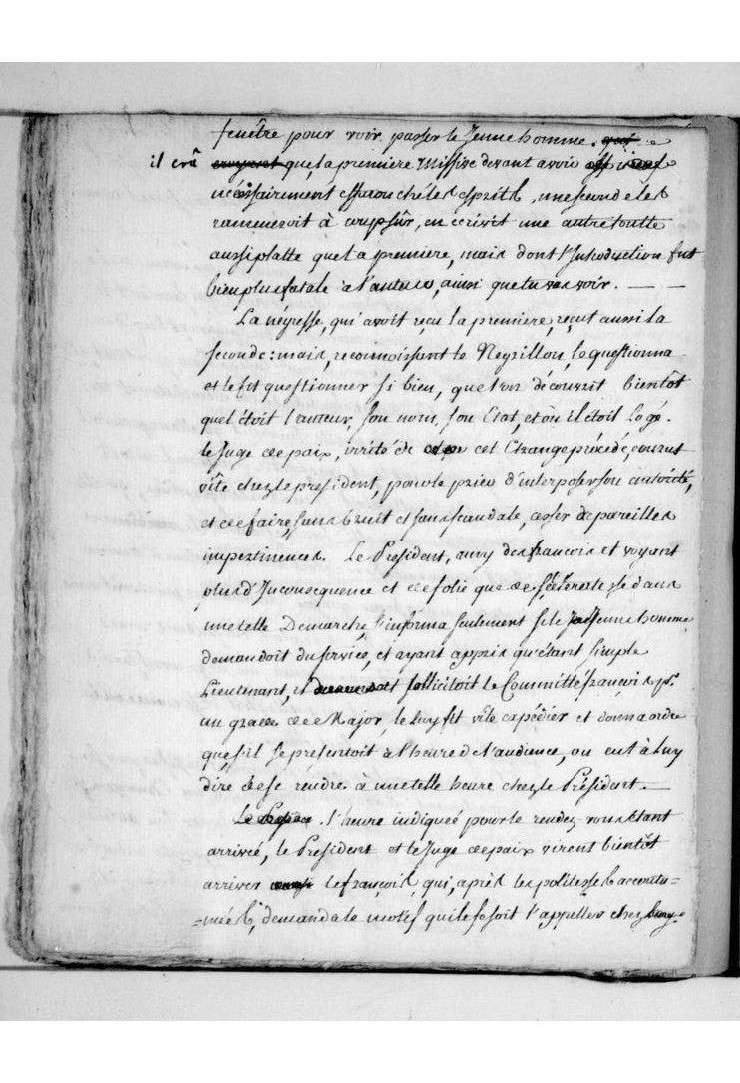 fenêtre pour voir passer le Jeune homme. qui
il crû croyant que, la premiere Missive devant avoir
nécessairement effarouché les esprits, une seconde les
rameneroit à coup sûr, en ecrivit une autre toutte
aussi platte que la premiere, mais dont l'Introduction fut
bien plus fatale à l'auteur, ainsi que tu vas voir. — —
La négresse, qui avoit reçu la premiere, reçut aussi la
seconde: mais, reconnoissant le Negrillon, le questionna
et le fit questionner si bien, que l'on découvrit bientôt
quel étoit l'auteur, son nom, son Etat, et où il étoit Logé.
Le Juge de paix, irrité de cet Etrange procédé, courut
vîte chez le president, pour le prier d'interposer son autorité,
et de faire, sans bruit et sans scandale, cesser de pareilles
impertinences. Le President, amy des françois et voyant
plus d'Inconsequence et de folie que de scélératesse dans
une telle Demarche, s'informa seulement si le Jeune homme
demandoit du service, et ayant appris qu'étant simple
Lieutenant, il sollicitoit le Committé françois pr.
un grade de Major, le luy fit vîte expédier et donna ordre
que, s'il se presentoit à l'heure de l'audience, on eut à luy
dire de se rendre à une telle heure chez le Président. —
L'heure indiqueé pour le rendez-vous etant
arriveé, le President et le Juge de paix virent bientôt
arriver le françois, qui, après les politesses accoutu=
=mées, demanda le motif qui le fesoit l'appeller chez luy.